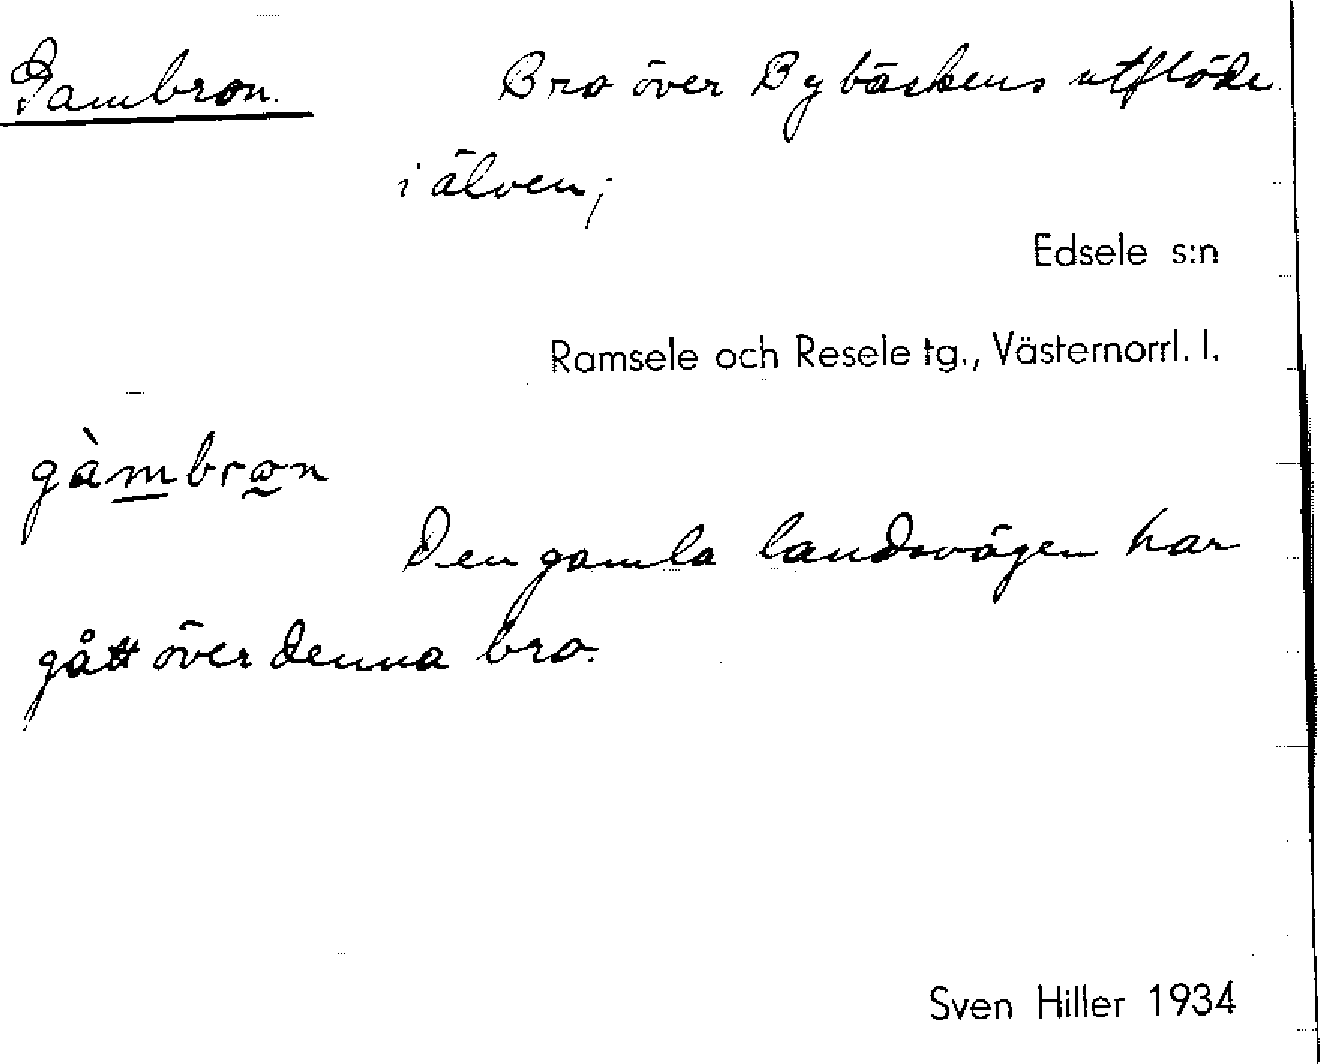 Gambron. Bro över Bybäckens utflöde
i älven;
Edsele s:n
Ramsele och Resele tg., Västernorrl. l.
gàmbron
Den gamla landsvägen har
gått över denna bro.
Sven Hiller 1934